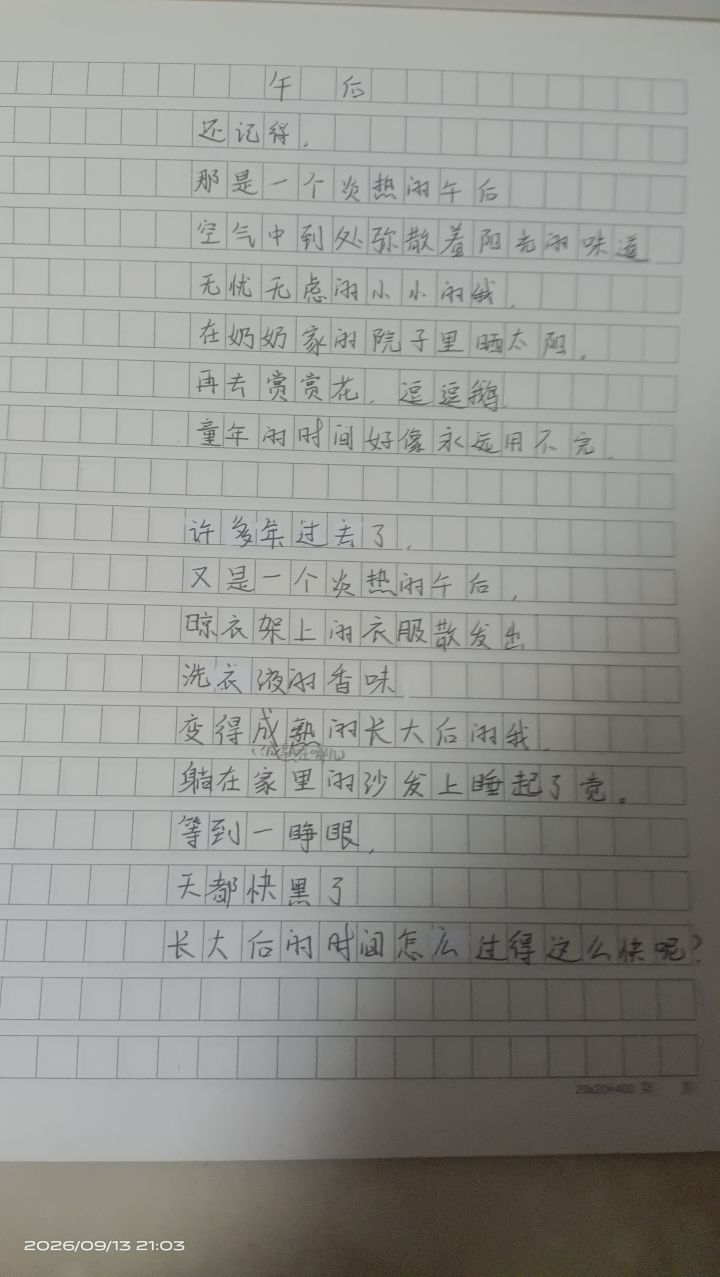 午后
还记得，
那是一个炎热的午后
空气中到处弥散着阳光的味道
无忧无虑的小小的我，
在奶奶家的院子里晒太阳。
再去赏赏花，逗逗鹅
童年的时间好像永远用不完。
许多年过去了，
又是一个炎热的午后，
晾衣架上的衣服散发出
洗衣液的香味
变得成熟的长大后的我，
（成熟在哪儿）
躺在家里的沙发上睡起了觉。
等到一睁眼，
天都快黑了
长大后的时间怎么过得这么快呢？
20x20=400 第 页
2026/09/13 21:03